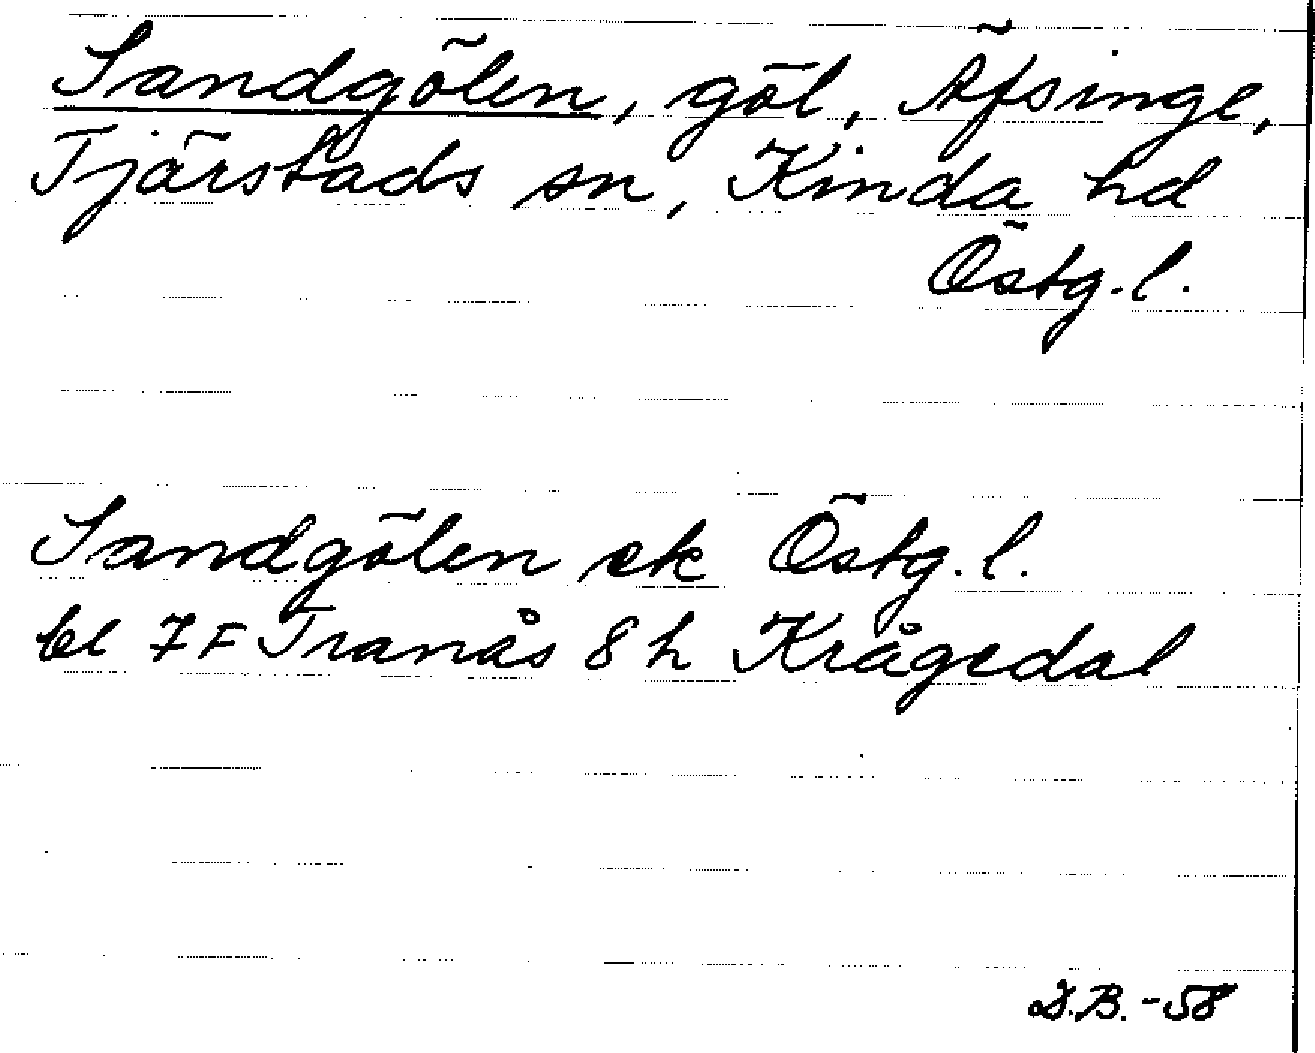 Sandgölen, göl, Äfsinge,
Tjärstads sn, Kinda hd
Östg. l.
Sandgölen ek Östg. l.
bl 7F Tranås 8 h Krågedal
D.B. -58